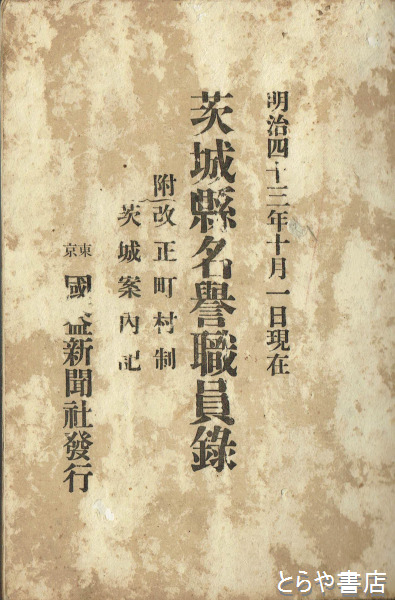 明治四十三年十月一日現在
茨城縣名譽職員錄
附 改正町村制
茨城案內記
東京 國益新聞社發行
とらや書店